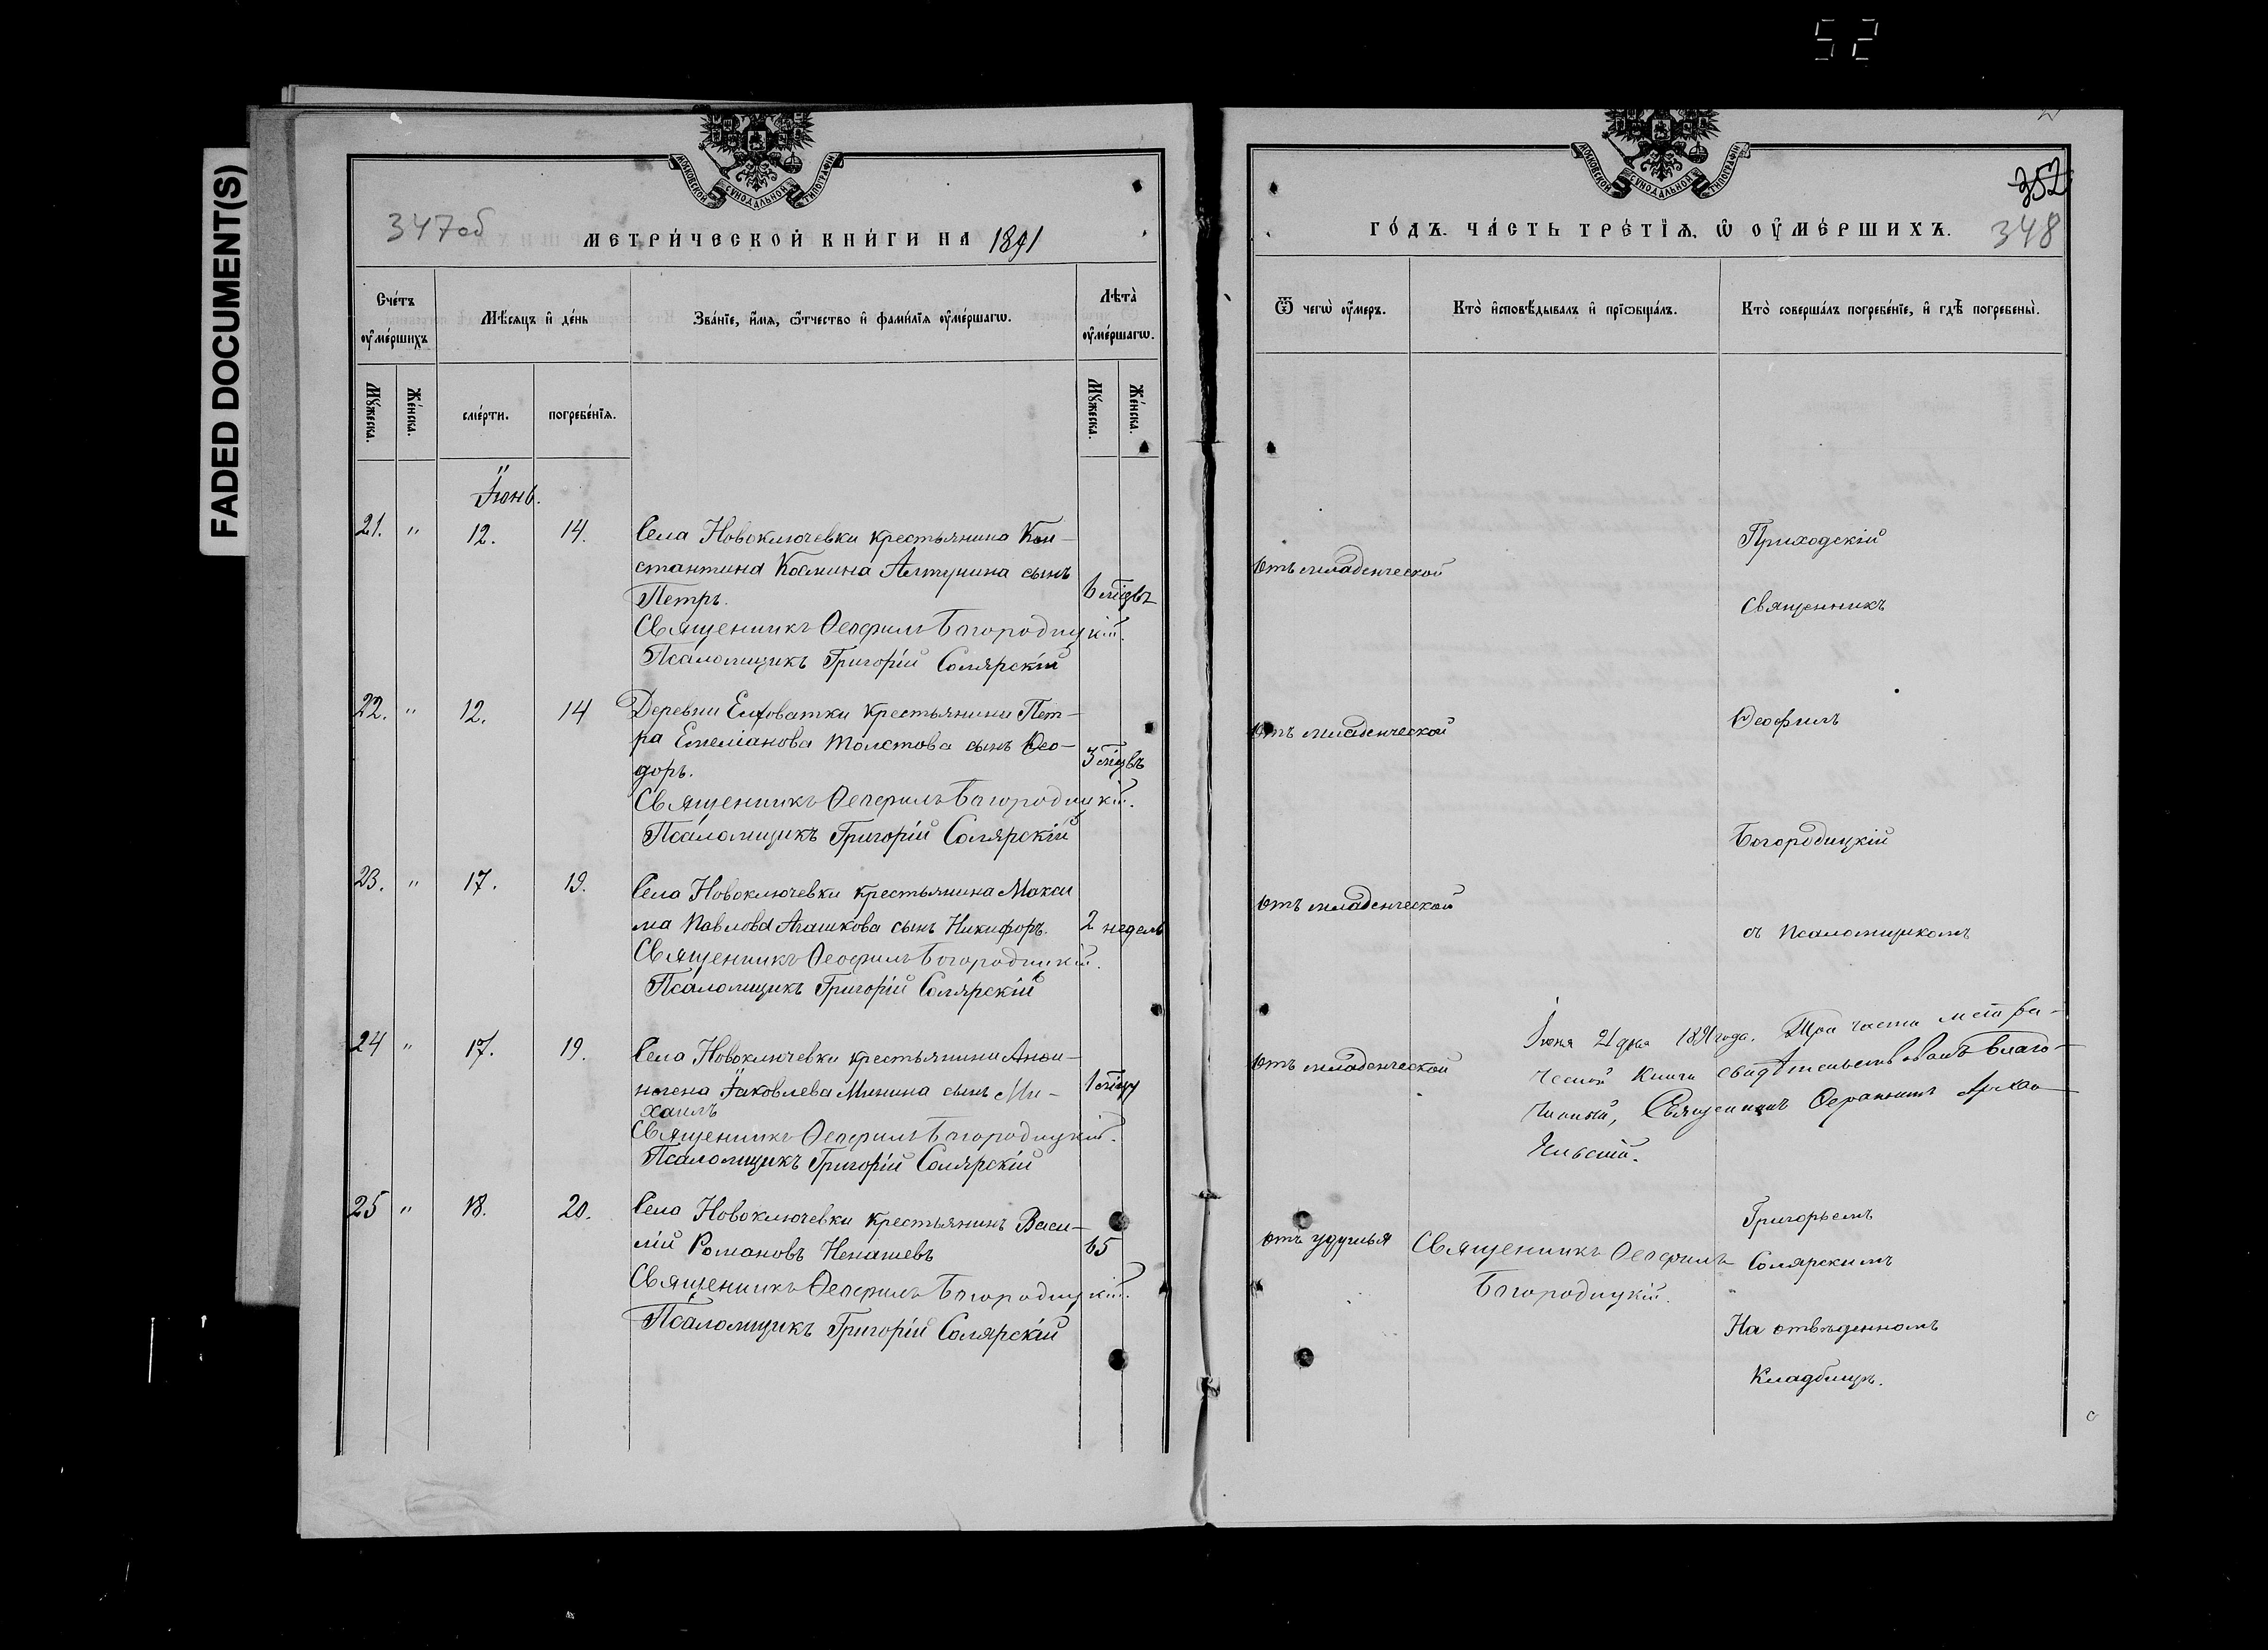 52
FADED DOCUMENT(S)
МОСКОВСКОЙ СѴНОДАЛЬНОЙ ТИПОГРАФІИ
347об
МЕТРИ́ЧЕСКОЙ КНИ́ГИ НА 1891
Сче́тъ ᲂу҆ме́ршихъ
Мѣ́сяцъ и҆ де́нь
Зва́нїе, и҆́мѧ, ѻ҆́тчество и҆ фами́лїѧ ᲂу҆ме́ршагѡ.
Лѣта̀ ᲂу҆ме́ршагѡ.
Мꙋ́жеска.
Же́нска.
сме́рти.
погребе́нїѧ.
Мꙋ́жеска.
Же́нска.
Іюнь.
21. " 12. 14. Села Новоключевки крестьянина Кон-
стантина Космина Алтунина сынъ
Петръ. 6 мѣцвъ
Священникъ Ѳеофилъ Богородицкій.
Псаломщикъ Григорій Солярскій
22. " 12. 14 Деревни Елховатки крестьянина Пет-
ра Емеліанова Толстова сынъ Ѳео-
доръ. 3 мѣцвъ
Священникъ Ѳеофилъ Богородицкій.
Псаломщикъ Григорій Солярскій
23. " 17. 19. Села Новоключевки крестьянина Макси
ма Павлова Агашкова сынъ Никифоръ. 2 недель
Священникъ Ѳеофилъ Богородицкій.
Псаломщикъ Григорій Солярскій
24 " 17. 19. Села Новоключевки крестьянина
Іаковлева Минина сынъ Ми- 1 мѣцу
хаилъ
Священникъ Ѳеофилъ Богородицкій.
Псаломщикъ Григорій Солярскій
25 " 18. 20. Села Новоключевки крестьянинъ Васи-
лій Романовъ Ненашевъ 65
Священникъ Ѳеофилъ Богородицкій.
Псаломщикъ Григорій Солярскій
МОСКОВСКОЙ СѴНОДАЛЬНОЙ ТИПОГРАФІИ
352
ГО́ДЪ. ЧА́СТЬ ТРЕ́ТЇѦ, Ѡ ОУ҆МЕ́РШИХЪ. 348
Ѿ чегѡ̀ ᲂу҆́меръ.
Кто̀ и҆сповѣ́дывалъ и҆ прїѡбща́лъ.
Кто̀ соверша́лъ погребе́нїе, и҆ гдѣ̀ погребены̀.
Отъ младенческой
Отъ младенческой
Отъ младенческой
Отъ младенческой
Отъ удушья
Священникъ Ѳеофилъ
Богородицкій.
Приходскій
Священникъ
Ѳеофилъ
Богородицкій
съ Псаломщикомъ
Іюня 21 дня 1891 года. Три части метри-
ческой книги свидѣтельствовалъ Благо-
чинный, Священникъ Архан-
гельскій.
Григорьемъ
Солярскимъ
На отвѣденномъ
Кладбищѣ.